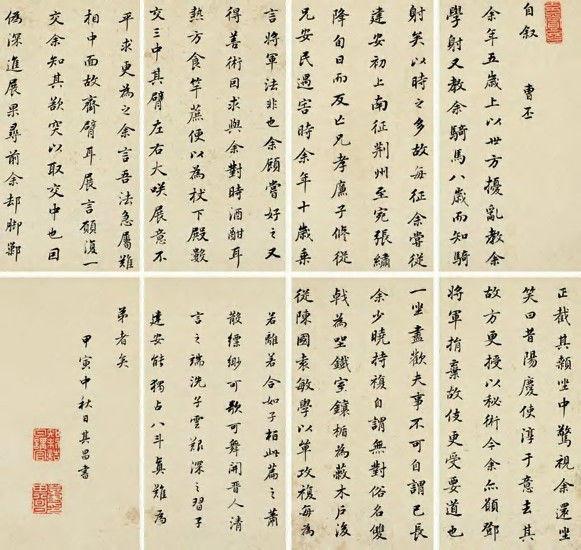 自叙　曹丕
余年五歲上以世方擾亂教余
學射又教余騎馬八歲而知騎
射矣以時之多故每征余嘗從
建安初上南征荆州至宛張繡
降旬日而反亡兄孝廉子修從
兄安民遇害時余年十歲乘
言將軍法非也余顧嘗好之又
得善術因求與余對時酒酣耳
熱方食竿蔗便以為杖下殿數
交三中其臂左右大咲展意不
平求更為之余言吾法急屬難
相中面故齊臂耳展言願復一
交余知其欲突以取交中也因
偽深進展果尋前余却脚鄛
正截其顙坐中驚視余還坐
笑曰昔陽慶使淳于意去其
故方更授以秘術今余亦願鄧
將軍捐棄故伎更受要道也
一坐盡歡夫事不可自謂己長
余少曉持複自謂無對俗名雙
戟為坐鐵室鑲楯為蔽木戶後
從陳國袁敏學以單攻複每為
若離若合如子桓此篇之蕭
散縹緲可歌可舞開晉人清
言之端洗子雲艱深之習子
建安能獨占八斗真難為
弟者矣
甲寅中秋日其昌書